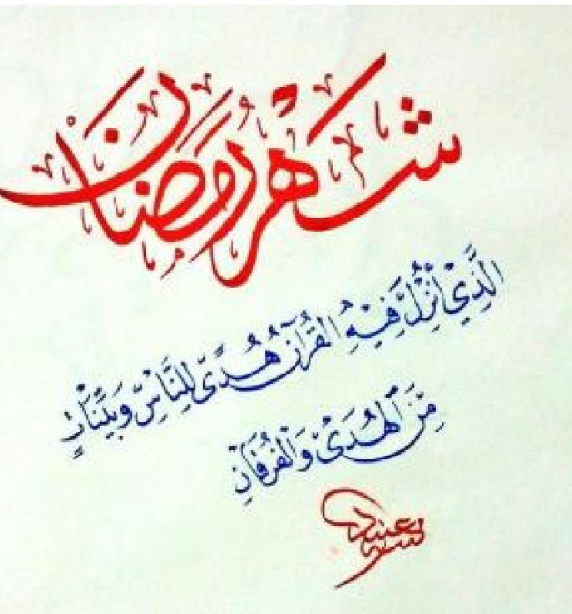 شَهْرُ رَمَضَانَ
الَّذِي أُنْزِلَ فِيهِ الْقُرْآنُ هُدًى لِلنَّاسِ وَبَيِّنَاتٍ
مِنَ الْهُدَى وَالْفُرْقَانِ